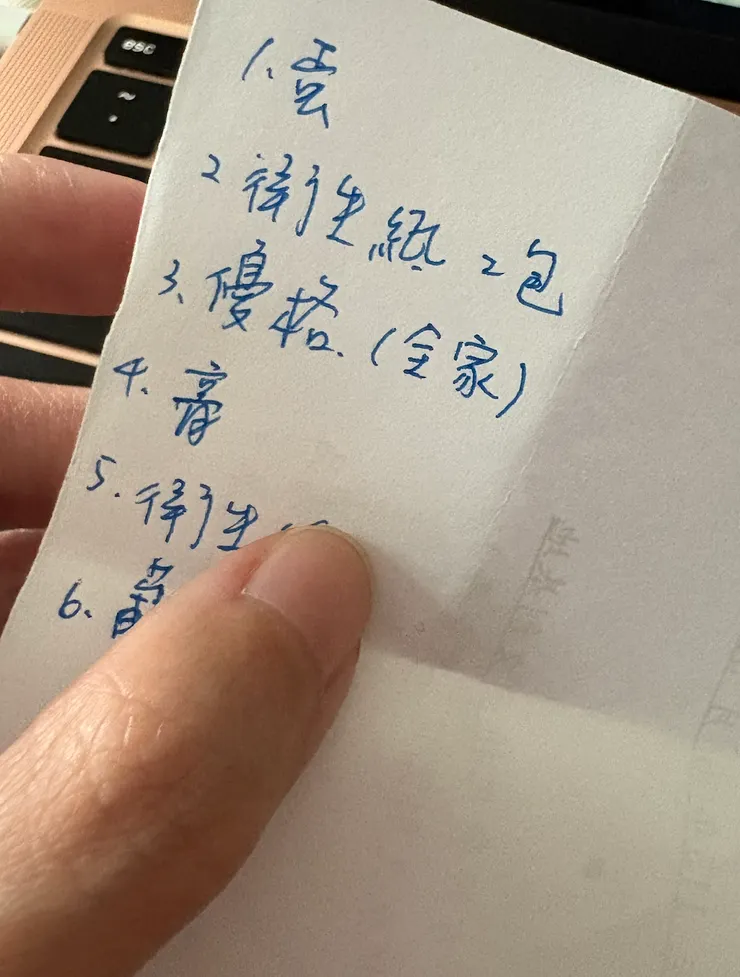 esc
1、蛋
2 衛生紙 2包
3、優格.(全家)
4、膏
5.衛生
6、